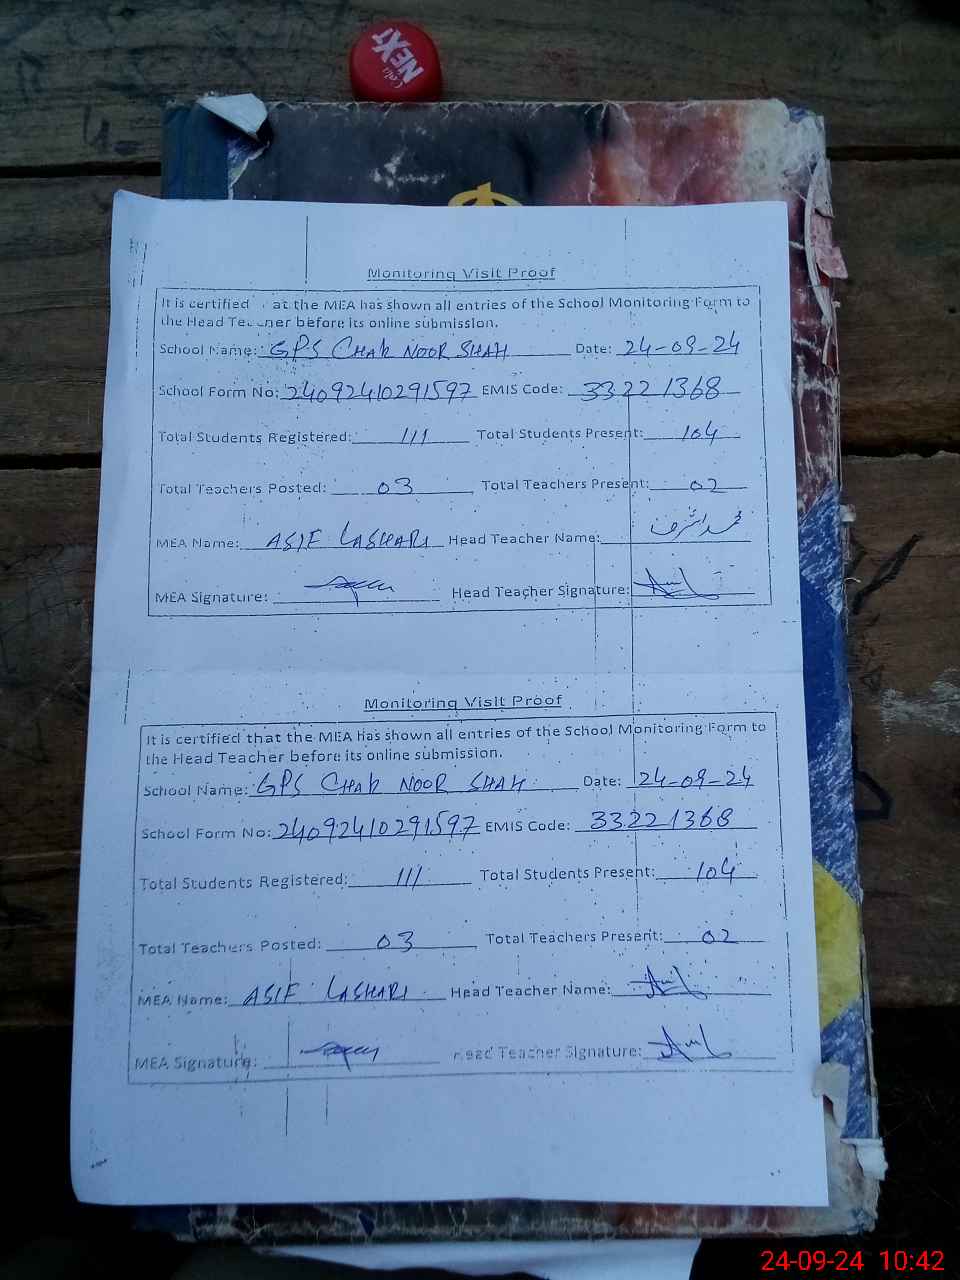 Cola NEXT
Monitoring Visit Proof
It is certified at the MEA has shown all entries of the School Monitoring Form to
the Head Teacher before its online submission.
School Name: GPS CHAK NOOR SHAH Date: 24-09-24
School Form No: 24092410291597 EMIS Code: 33221368
Total Students Registered: 111 Total Students Present: 104
Total Teachers Posted: 03 Total Teachers Present: 02
MEA Name: ASIF LASHARI Head Teacher Name: محمد اشرف
MEA Signature: Head Teacher Signature:
Monitoring Visit Proof
It is certified that the MEA has shown all entries of the School Monitoring Form to
the Head Teacher before its online submission.
School Name: GPS CHAK NOOR SHAH Date: 24-09-24
School Form No: 24092410291597 EMIS Code: 33221368
Total Students Registered: 111 Total Students Present: 104
Total Teachers Posted: 03 Total Teachers Present: 02
MEA Name: ASIF LASHARI Head Teacher Name:
MEA Signature: Head Teacher Signature:
24-09-24 10:42